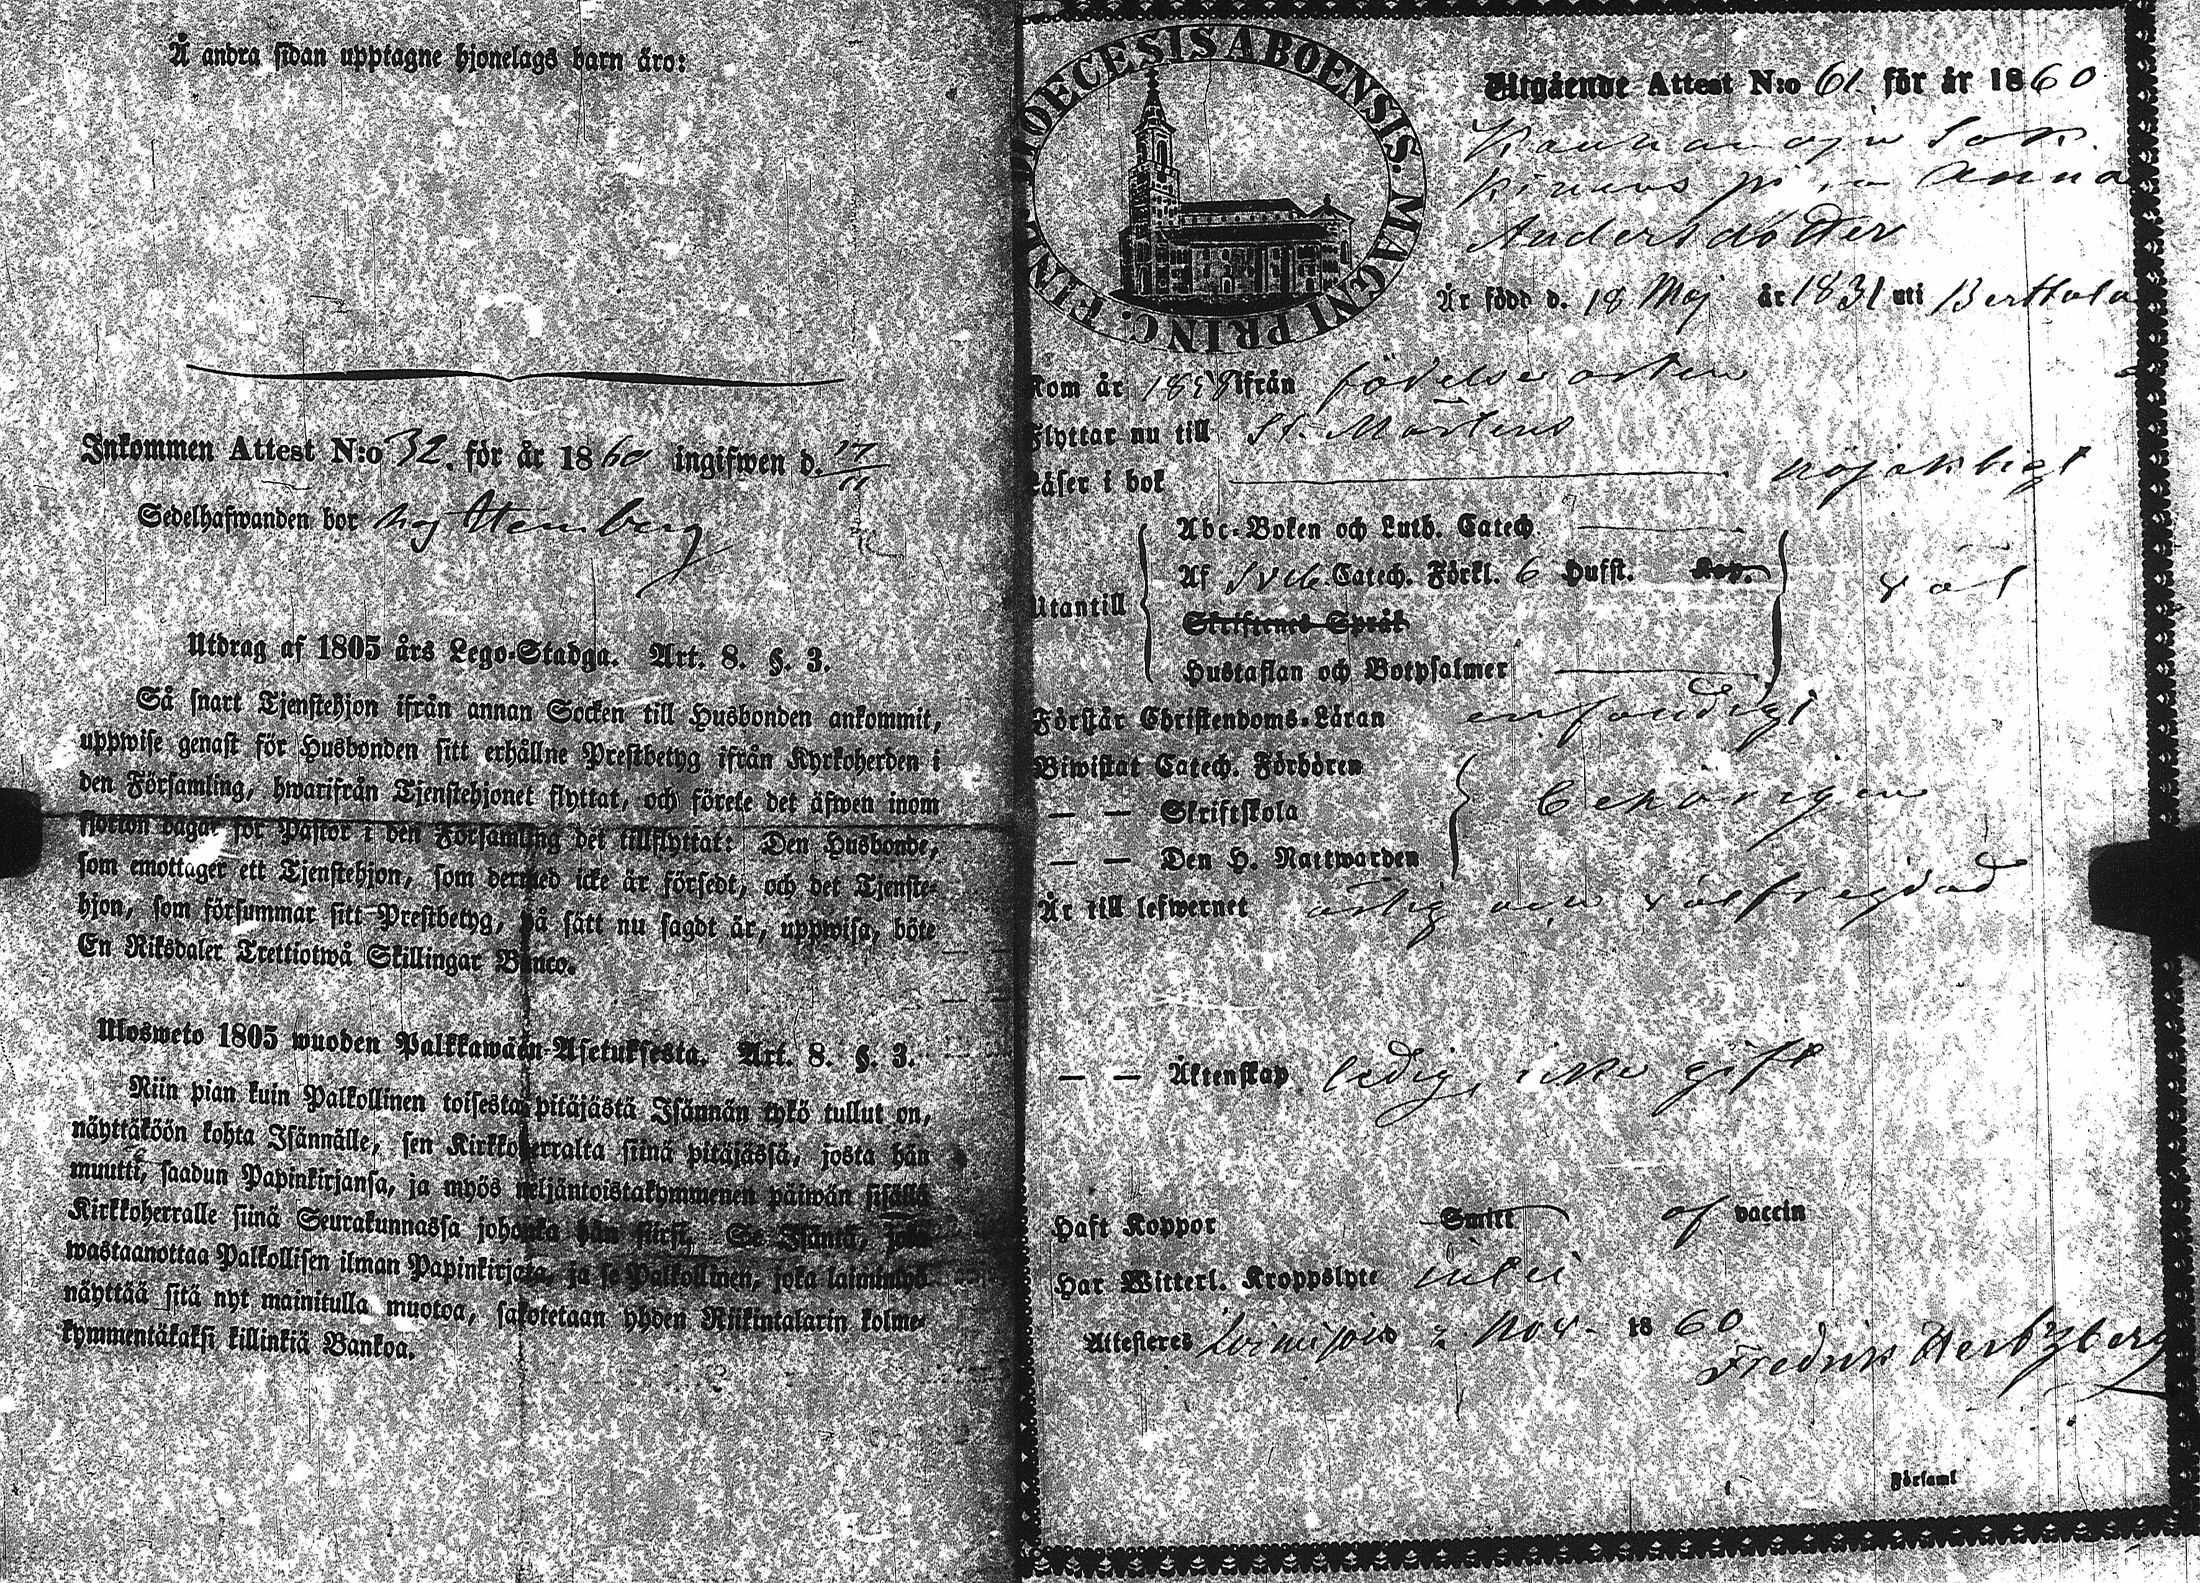 Å andra sidan upptagne hjonelags barn äro:
Inkommen Attest N:o 32. för år 1860 ingifwen d. 17/11
Sedelhafwanden bor
Utdrag af 1805 års Lego-Stadga. Art. 8. §. 3.
Så snart Tjenstehjon ifrån annan Socken till Husbonden ankommit,
uppwise genast för Husbonden sitt erhållne Prestbetyg ifrån Kyrkoherden i
den Församling, hwarifrån Tjenstehjonet flyttat, och förete det äfwen inom
fjorton dagar för Pastor i den Församling det tillflyttat: Den Husbonde,
som emottager ett Tjenstehjon, som dermed icke är försedt, och det Tjenste-
hjon, som försummar sitt Prestbetyg, på sätt nu sagdt är, uppwisa, böte
En Riksdaler Trettiotwå Skillingar Banco.
Ulosweto 1805 wuoden Palkkawäen-Asetuksesta. Art. 8. §. 3.
Niin pian kuin Palkollinen toisesta pitäjästä Isännän tykö tullut on,
näyttäköön kohta Isännälle, sen Kirkkoherralta siinä pitäjässä, josta hän
muutti, saadun Papinkirjansa, ja myös neljäntoistakymmenen päiwän sisällä
Kirkkoherralle siinä Seurakunnassa johonka hän siirsi. Se Isäntä, joka
wastaanottaa Palkollisen ilman Papinkirjata, ja se Palkollinen, joka laiminlyö
näyttää sitä nyt mainitulla muotoa, sakotetaan yhden Riikintalarin kolme-
kymmentäkaksi killinkiä Bankoa.
DIOECESIS ABOENSIS. MAGNI PRINC. FINL.
Utgående Attest N:o 61 för år 1860
Anna
Andersdotter
Är född d. 18 Maj år 1831 uti Berttula
Kom år 1858 ifrån födelseorten
Flyttar nu till St. Mårtens
Läser i bok nöjaktigt
Utantill
Abc-Boken och Luth. Catech.
Af Sveb. Catech. Förkl. 6 Hufst. Kap.
Skriftenes Språk
Hustaflan och Botpsalmer
väl
Förstår Christendoms-Läran enfaldigt
Biwistat Catech. Förhören
— — Skriftskola
— — Den H. Nattwarden
behörigen
Är till lefwernet ärlig och välfrejdad
— — Äktenskap ledig, icke gift
Haft Koppor Smitt af vaccin
Har Witterl. Kroppslyte intet
Attesteres Loimijoki d. 2 Nov. 1860
Fredrik Hertzberg
Församl